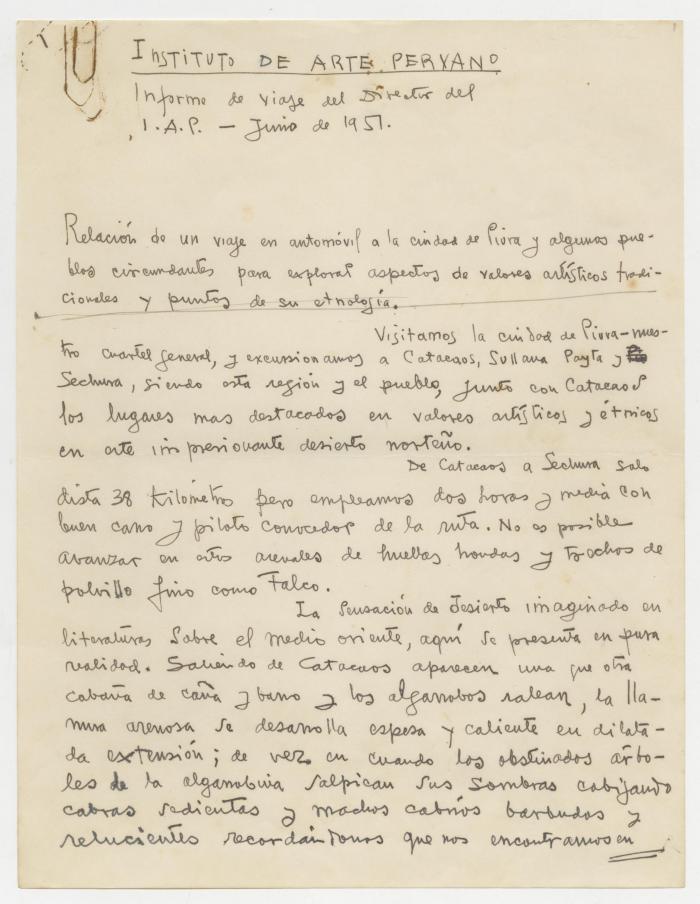 INSTITUTO DE ARTE PERUANO
Informe de viaje del Director del
I.A.P. – Junio de 1951.
Relación de un viaje en automóvil a la ciudad de Piura y algunos pue-
blos circundantes para explorar aspectos de valores artísticos tradi-
cionales y puntos de su etnología.
Visitamos la ciudad de Piura – nues-
tro cuartel general, y excursionamos a Catacaos, Sullana Payta y
Sechura, siendo esta región y el pueblo, junto con Catacaos
los lugares mas destacados en valores artísticos y étnicos
en este impresionante desierto norteño.
De Catacaos a Sechura solo
dista 38 Kilómetros pero empleamos dos horas y media con
buen carro y piloto conocedor de la ruta. No es posible
avanzar en estos arenales de huellas hondas y trochos de
polvillo fino como Talco.
La sensación de desierto imaginado en
literaturas sobre el medio oriente, aquí se presenta en pura
realidad. Saliendo de Catacaos aparecen una que otra
cabaña de caña y barro y los algarrobos ralean, la lla-
nura arenosa se desarrolla espesa y caliente en dilata-
da extensión; de vez en cuando los obstinados árbo-
les de la algarrobina salpican sus sombras cobijando
cabras sedientas y machos cabríos barbudos y
relucientes recordándonos que nos encontramos en